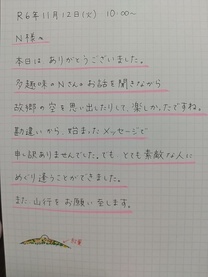 R6年11月12日(火) 10:00〜
N様へ
本日は ありがとうございました。
多趣味のNさんのお話を聞きながら
故郷の空を思い出したりして、楽しかったですね。
勘違いから、始まったメッセージで
申し訳ありませんでした。でも、とても素敵な人に
めぐり逢うことができました。
また、山行をお願い致します。